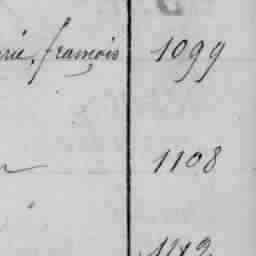 rie, françois 1099
1108